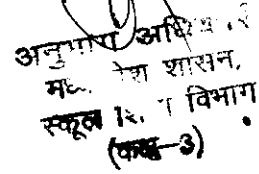 अनुभाग अधिकारी
मध्य प्रदेश शासन,
स्कूल शिक्षा विभाग
(कक्ष-3)